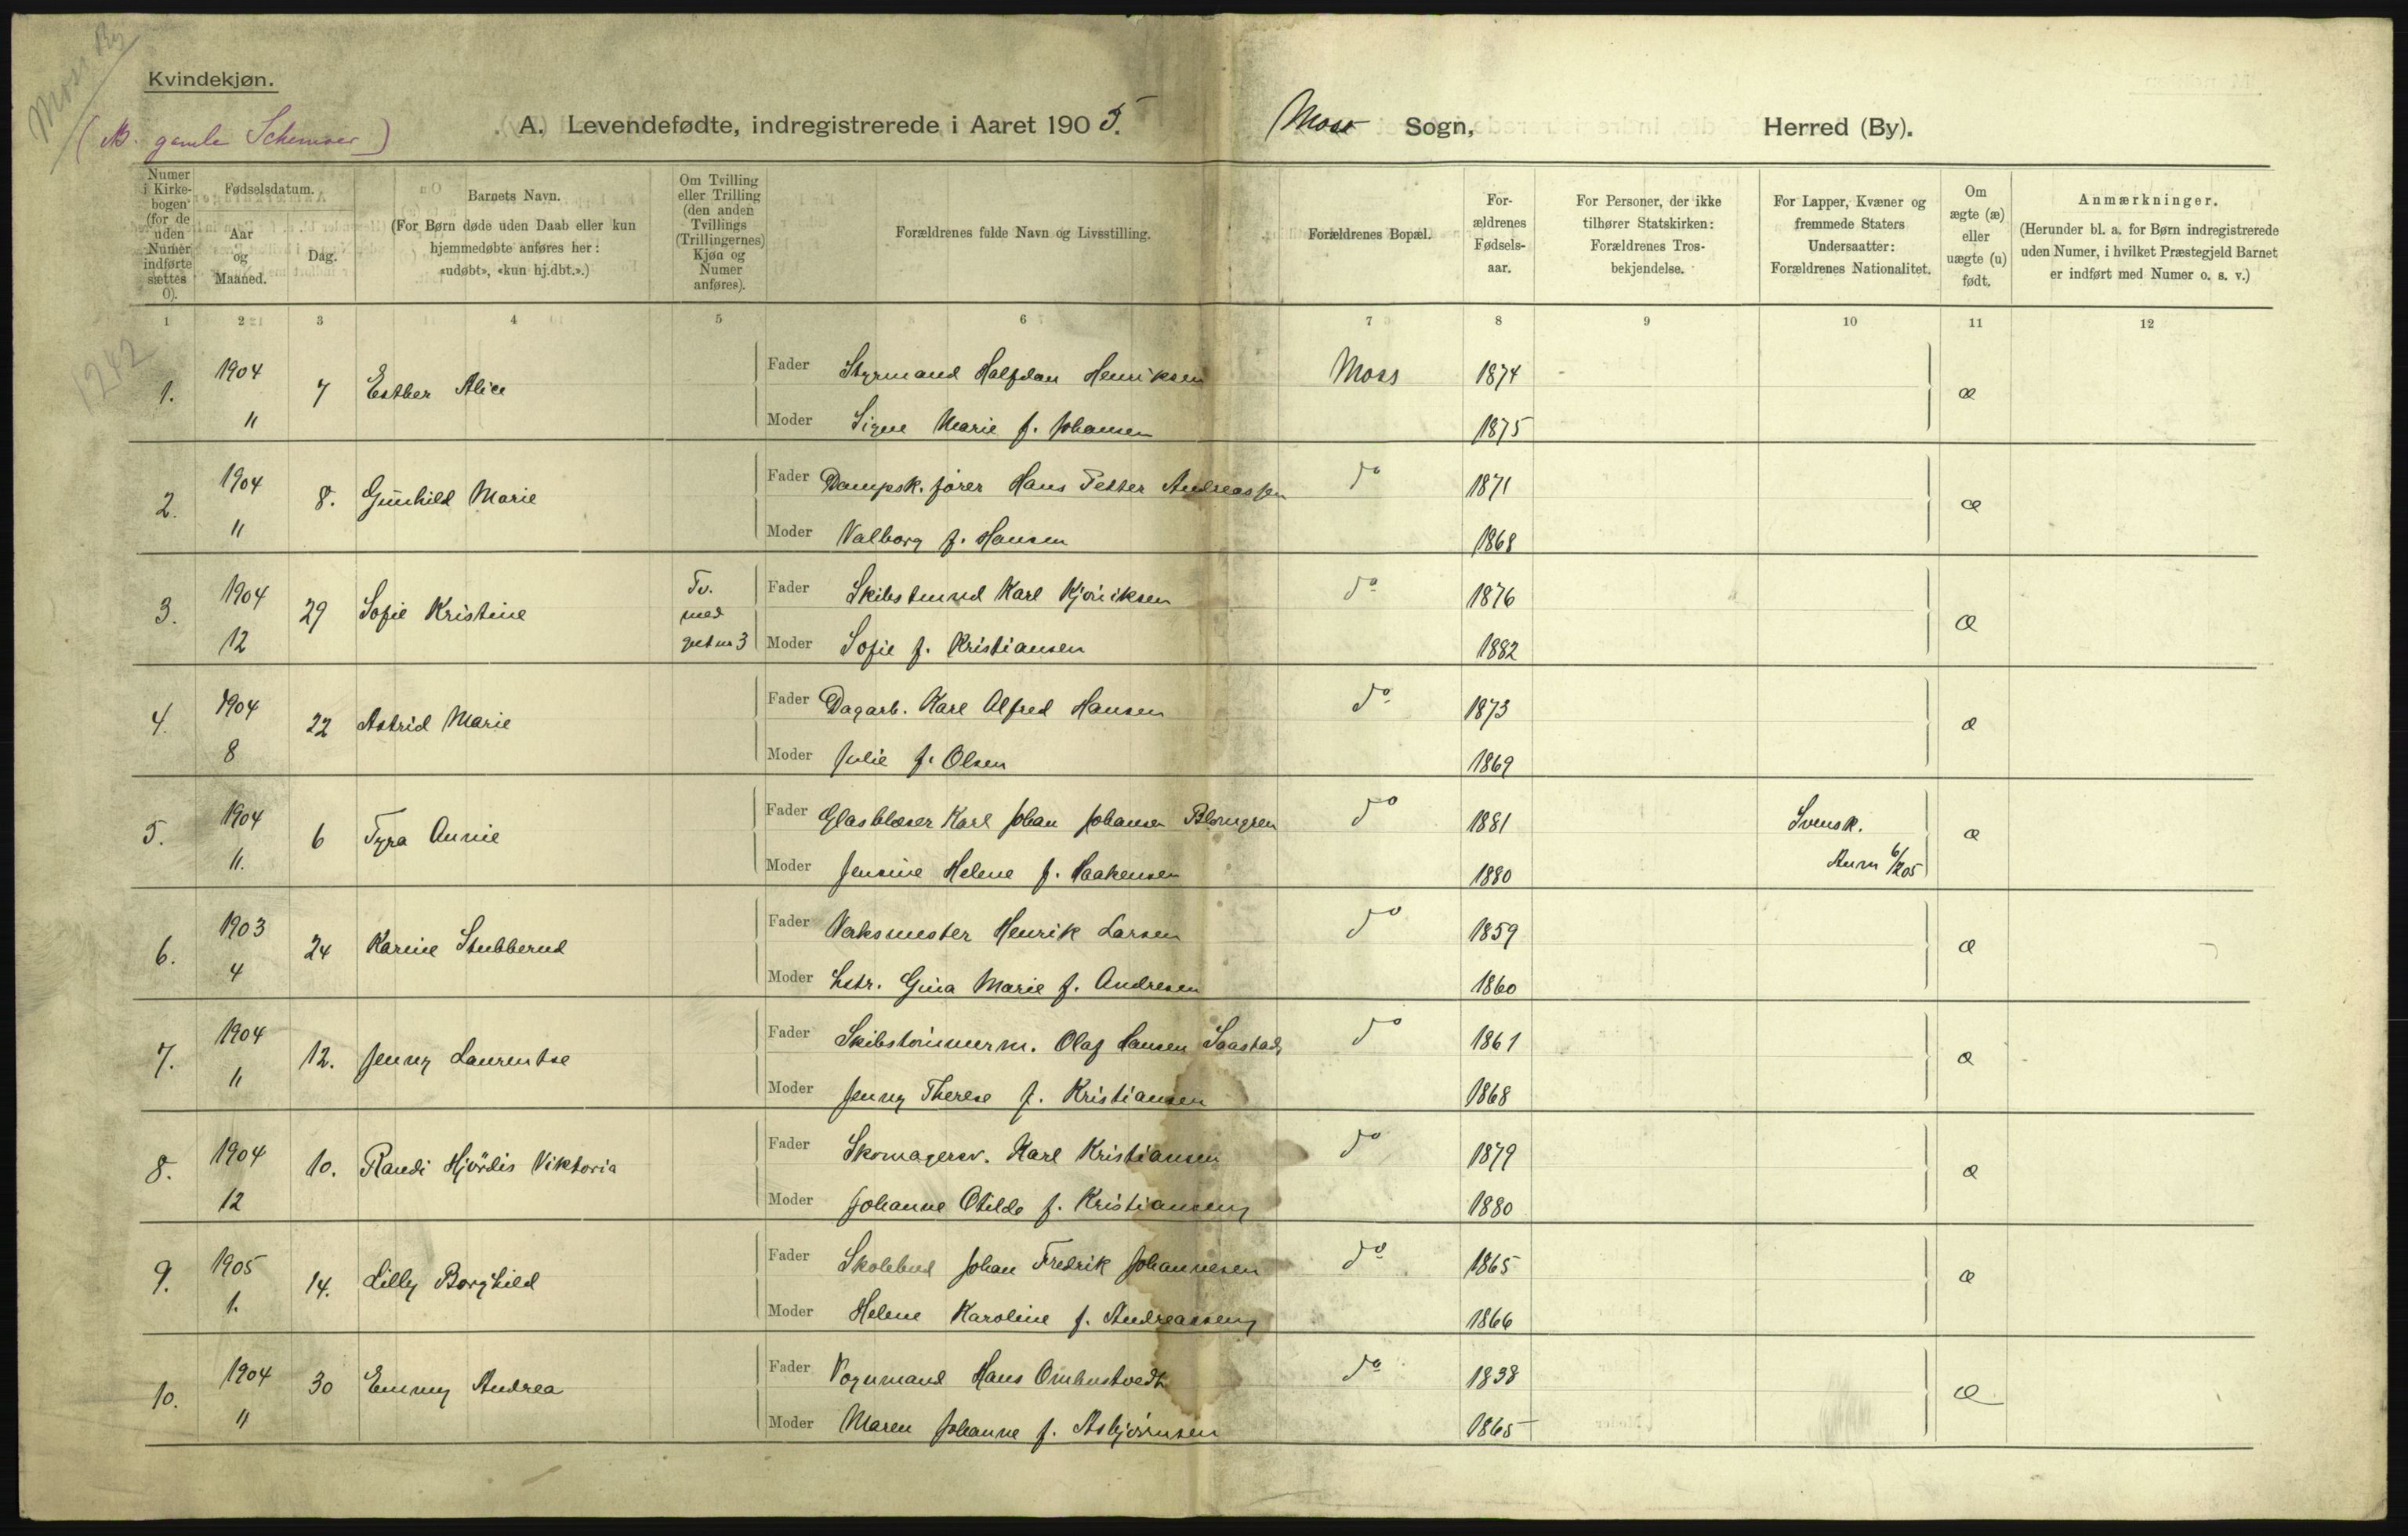 Moss By
Kvindekjøn.
(NB. gamle Schemaer)
A. Levendefødte, indregistrerede i Aaret 1905. Moss Sogn, Herred (By).
Numer i Kirkebogen (for de uden Numer indførte sættes 0).
Fødselsdatum.
Aar og Maaned.
Dag.
Barnets Navn.
(For Børn døde uden Daab eller kun hjemmedøbte anføres her: «udøbt», «kun hj.dbt.».)
Om Tvilling eller Trilling (den anden Tvillings (Trillingernes) Kjøn og Numer anføres).
Forældrenes fulde Navn og Livsstilling.
Forældrenes Bopæl.
Forældrenes Fødselsaar.
For Personer, der ikke tilhører Statskirken: Forældrenes Trosbekjendelse.
For Lapper, Kvæner og fremmede Staters Undersaatter: Forældrenes Nationalitet.
Om ægte (æ) eller uægte (u) født.
Anmærkninger.
(Herunder bl. a. for Børn indregistrerede uden Numer, i hvilket Præstegjeld Barnet er indført med Numer o. s. v.)
1 2 3 4 5 6 7 8 9 10 11 12
1242
1. 1904 7 Esther Alice Fader Styrmand Halfdan Henriksen Moss 1874 æ
11 Moder Signe Marie f. Johansen 1875
2. 1904 8. Gunhild Marie Fader Dampsk.fører Hans Petter Andreassen do 1871 æ
11 Moder Valborg f. Hansen 1868
3. 1904 29 Sofie Kristine Tv. med Fader Karl do 1876 æ
12 3 Moder Sofie f. Kristiansen 1882
4. 1904 22 Astrid Marie Fader Dagarb. Karl Alfred Hansen do 1873 æ
8 Moder Julie f. Olsen 1869
5. 1904 6 Tyra Annie Fader Glasblæser Karl Johan Johansen Blomgren do 1881 Svensk. æ
11. Moder Jensine Helene f. Haakensen 1880 6/12 05
6. 1903 24 Karine Stubberud Fader Verksmester Henrik Larsen do 1859 æ
4 Moder Hstr. Gina Marie f. Andresen 1860
7. 1904 12. Jenny Laurentse Fader Skibstømmerm. Olaf Hansen Saastad do 1861 æ
11 Moder Jenny Therese f. Kristiansen 1868
8. 1904 10. Randi Hjördis Viktoria Fader Skomagersv. Karl Kristiansen do 1879 æ
12 Moder Johanne Otilde f. Kristiansen 1880
9. 1905 14. Lilly Borghild Fader Skolebud Johan Fredrik Johannesen do 1865 æ
1. Moder Helene Karoline f. Andreassen 1866
10. 1904 30 Emmy Andrea Fader Vognmand Hans do 1838 æ
11 Moder Maren Johanne f. Asbjörnsen 1865